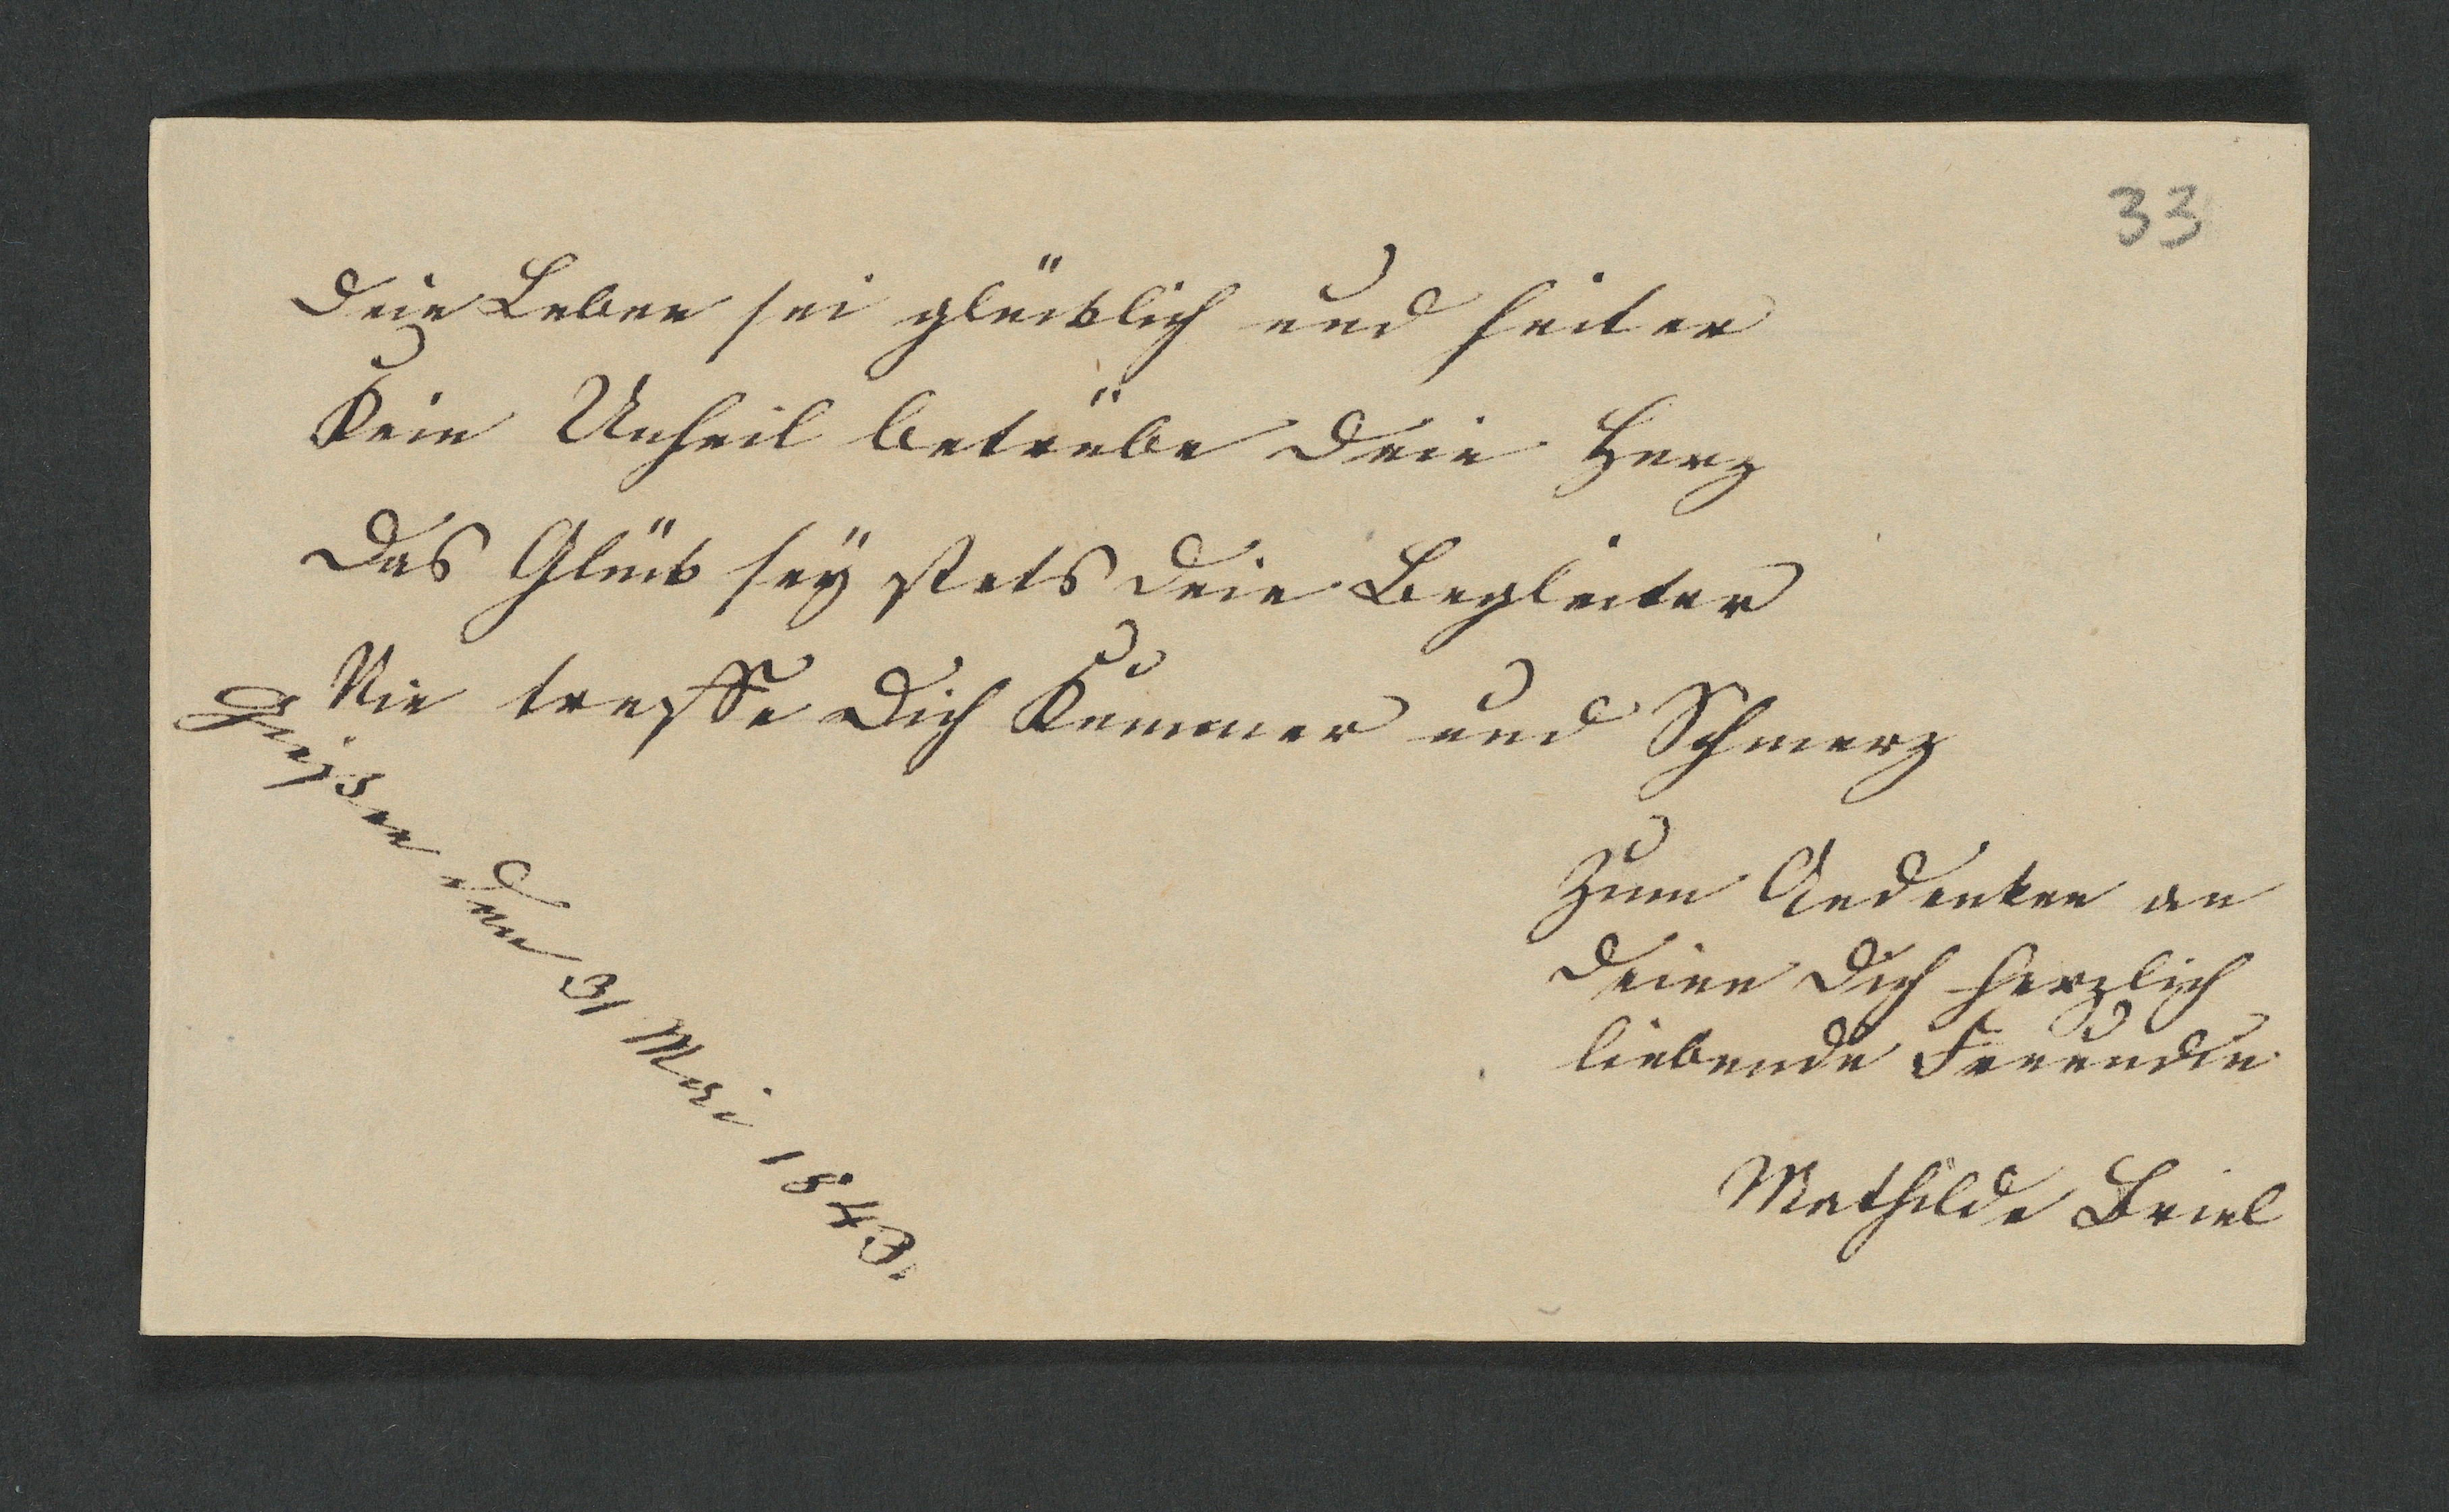 33
Dein Leben sei glücklich und heiter
Kein Unheil betrübe Dein Herz
Das Glück seÿ stets Dein Begleiter
Nie treffe Dich Kummer und Schmerz
Zum Andenken an
Deine Dich herzlich
liebende Freundin
Mathilde Briel
Gießen den 31 Mai 1843.